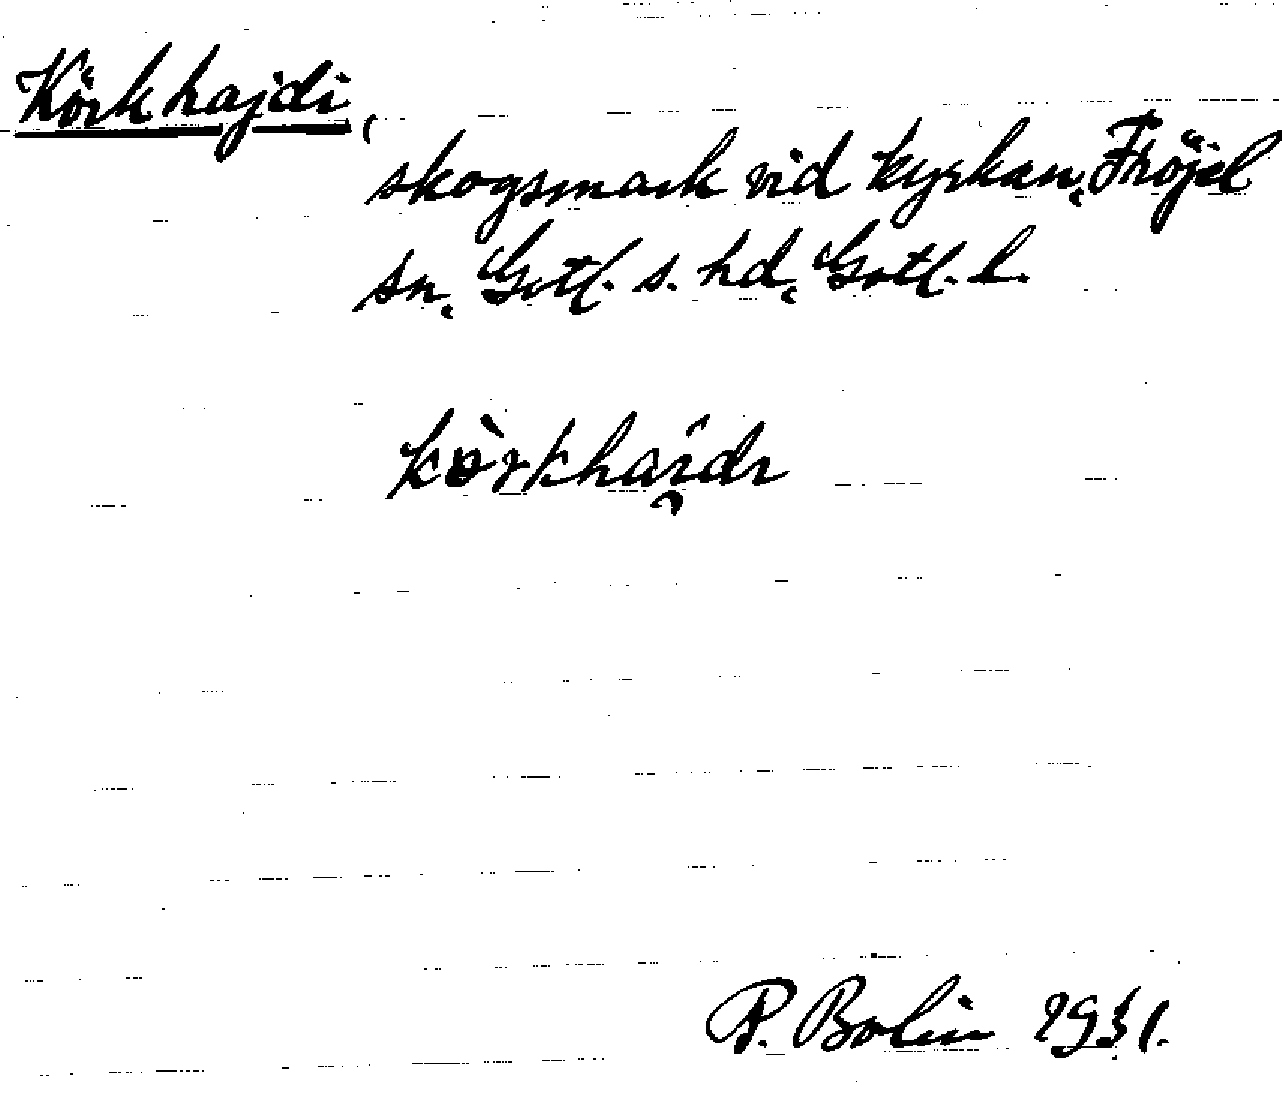 Körkhajdi,
skogsmark vid kyrkan, Fröjel
sn, Gotl. s. hd, Gotl. l.
kòrkhai̯dı
P. Bolin 1931.